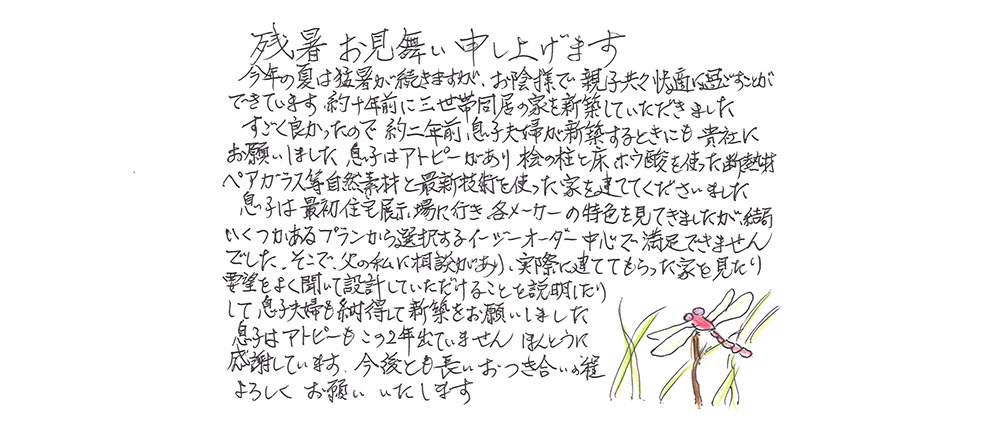 残暑お見舞い申し上げます
今年の夏は猛暑が続きますが、お陰様で親子共々快適に過ごすことが
できています。約十年前に三世帯同居の家を新築していただきました
すごく良かったので約二年前、息子夫婦が新築するときにも貴社に
お願いしました 息子はアトピーがあり桧の柱と床、ホウ酸を使った断熱材
ペアガラス等自然素材と最新技術を使った家を建ててくださいました
息子は最初住宅展示場に行き各メーカーの特色を見てきましたが結局
いくつかあるプランから選択するイージーオーダー中心で満足できません
でした。そこで、父の私に相談があり、実際に建ててもらった家を見たり
要望をよく聞いて設計していただけることを説明したり
して息子夫婦も納得して新築をお願いしました
息子はアトピーもこの2年出ていません ほんとうに
感謝しています。今後とも長いおつき合いの程
よろしくお願いいたします